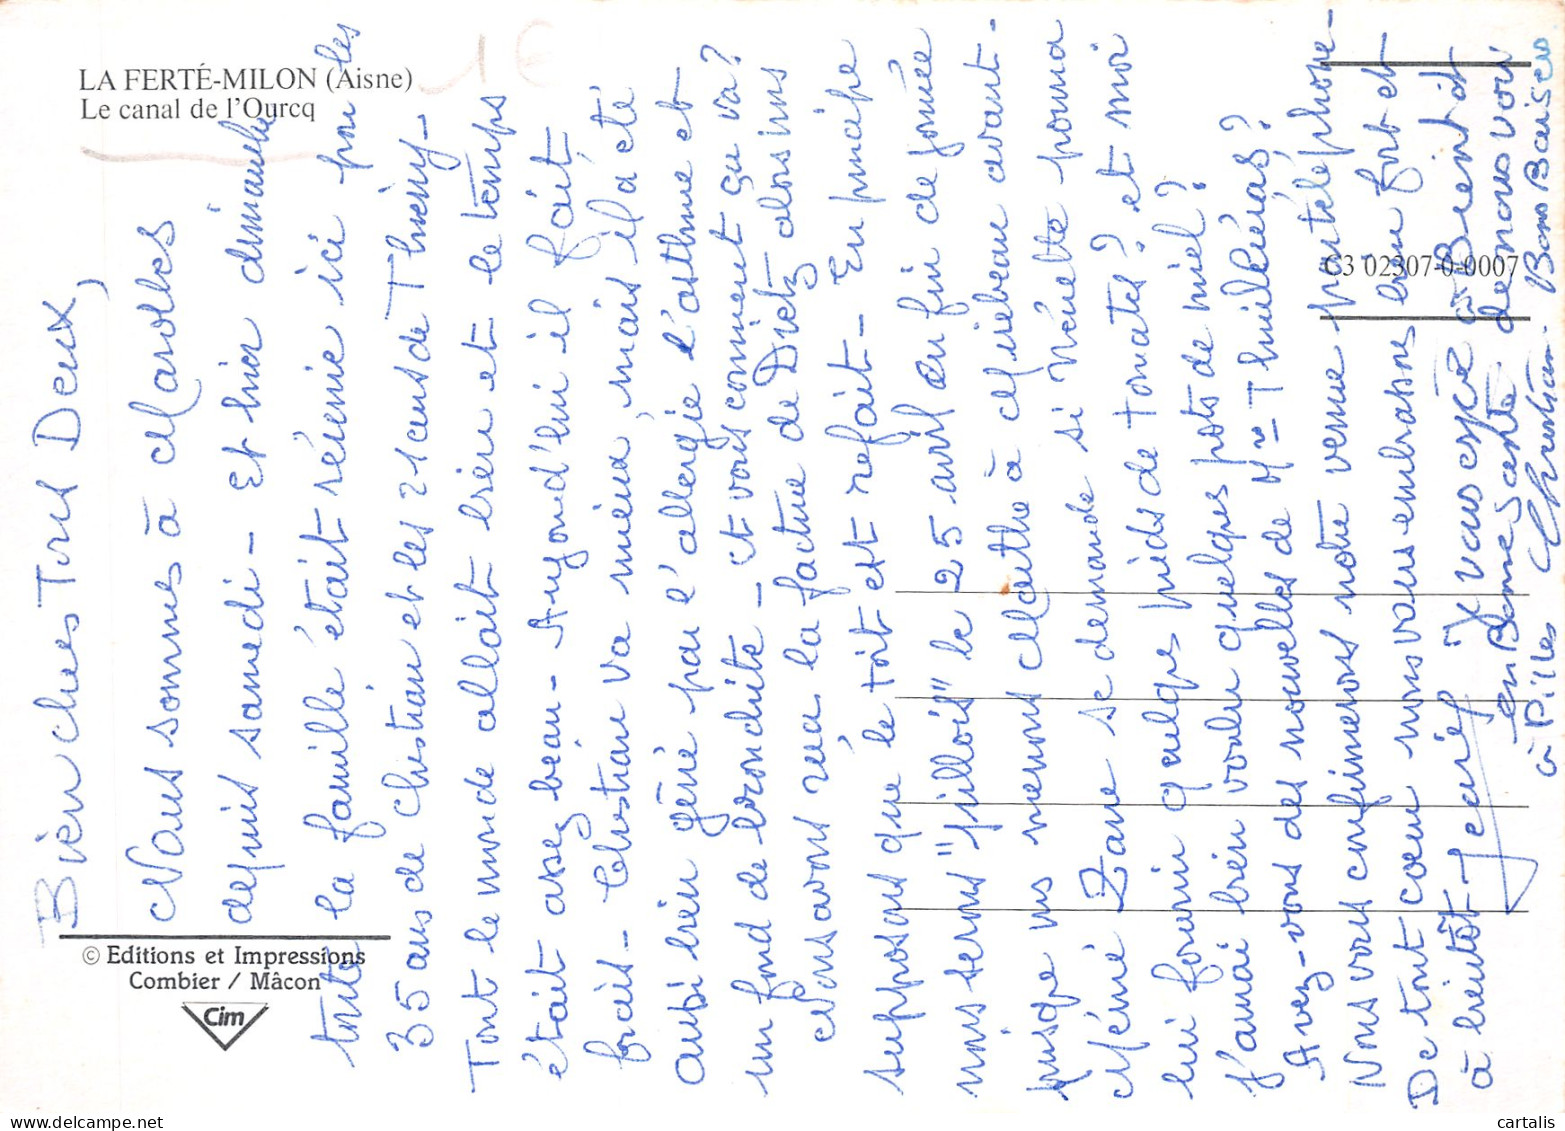 LA FERTÉ-MILON (Aisne)
Le canal de l'Ourcq
1€
C3 02307-0-0007
© Editions et Impressions
Combier / Mâcon
Cim
Bien chers Tous Deux,
Nous sommes à Marolles
depuis samedi - Et hier dimanche
toute la famille était réunie ici pour les
35 ans de Christian et les 21 ans de Thierry -
Tout le monde allait bien et le temps
était assez beau - Aujourd'hui il fait
froid - Christian va mieux, mais il a été
aussi bien gêné par l'allergie l'asthme et
un fond de bronchite - et vous comment ça va?
Nous avons reçu la facture de Dietz alors nous
supposons que le toit est refait - En principe
nous serons "pillois" le 25 avril en fin de journée
puisque nous menons Marthe à Mirebeau avant -
Mémé Zane se demande si Nénette pourra
lui fournir quelques pieds de tomates? et moi
j'aurai bien voulu quelques pots de miel?
Avez-vous des nouvelles de Mr
Nous vous confirmerons notre venue par téléphone -
De tout coeur nous vous embrassons bien fort et
à bientôt -
Je vous espère
en Bonne Santé
à Pilles
Christian
Bientôt
de nous voir
Bons Baisers
cartalis